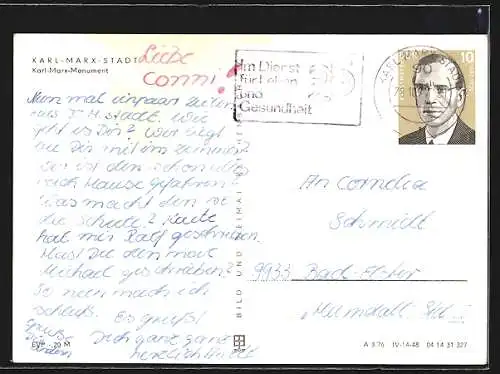 KARL-MARX-STADT
Karl-Marx-Monument
Liebe
Conni!
Nun mal ein paar Zeilen
aus K.-M.-Stadt. Wie
geht es Dir? Wer liegt
bei Dir mit im Zimmer?
Wer ist denn schon alles
nach Hause gefahren?
Was macht denn so
die Schule? Heute
hat mir Ralf geschrieben.
Hast Du denn mal
Michael geschrieben?
So nun mach ich
schluß. Es grüßt
Dich ganz ganz
herzlich
EVP –,20 M
BILD UND HEIMAT
Im Dienst
für Leben
und
Gesundheit
KARL-MARX-STADT
10
An Cornelia
Schmidt
9933 Bad-Elster
A 3/76 IV-14-48 04 14 31 327